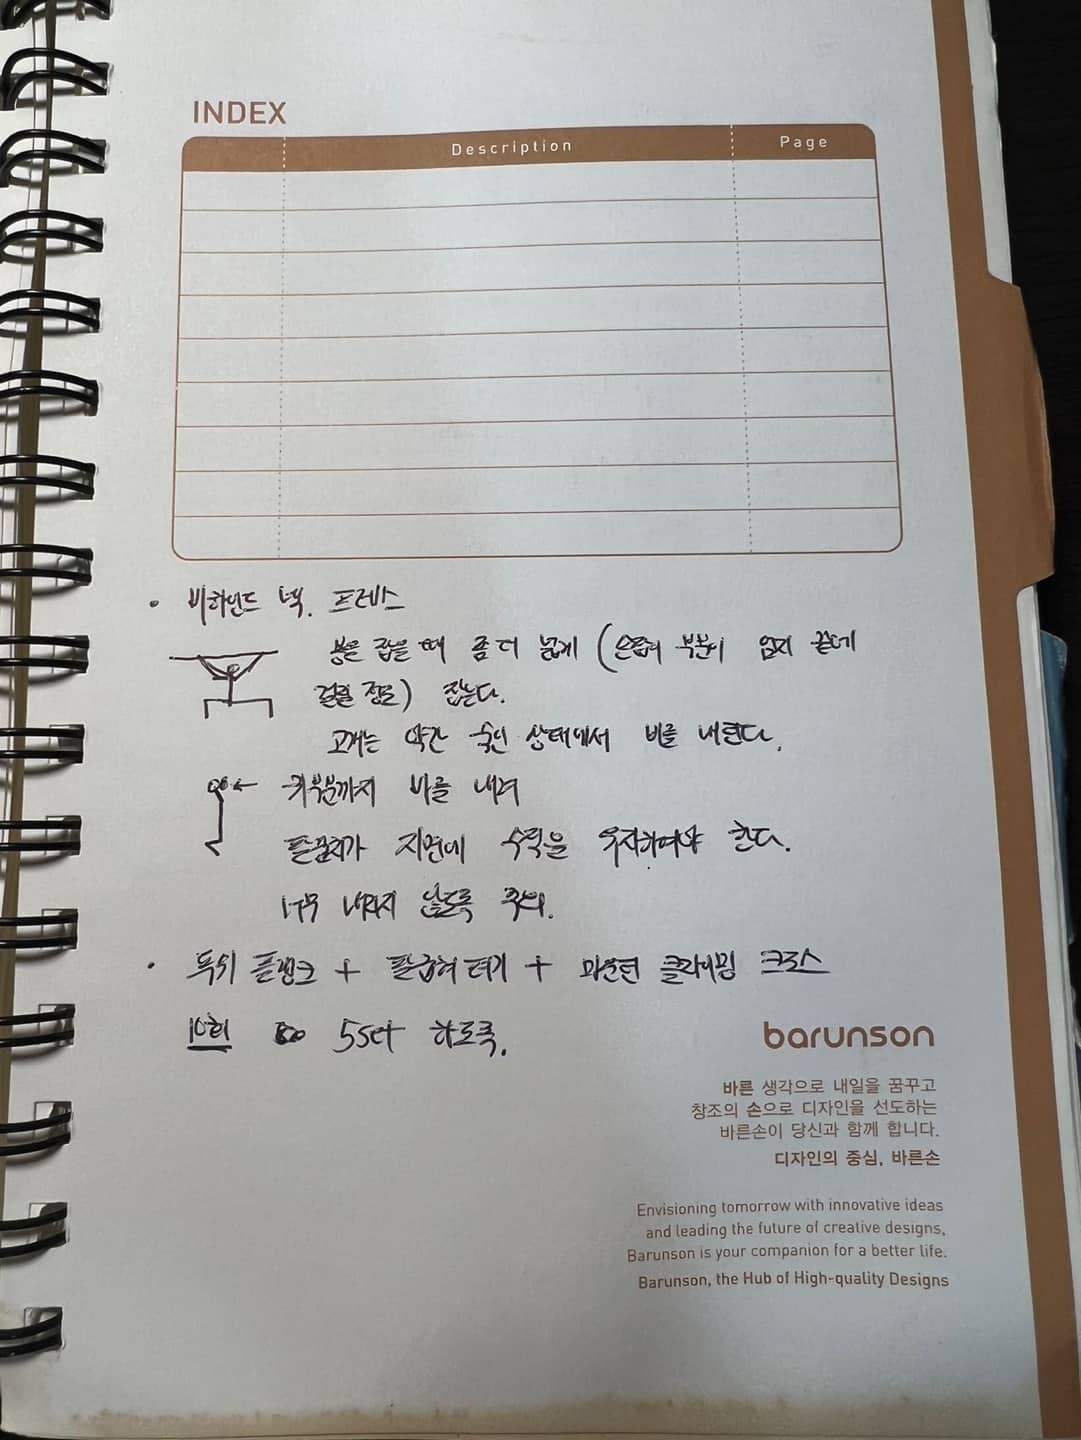 INDEX
Description Page
• 비하인드 넥. 프레스
봉을 잡을 때 좀 더 넓게 (손톱이 부분이 엄지 끝에
걸릴 정도) 잡는다.
고개는 약간 숙인 상태에서 바를 내린다.
귀부분까지 바를 내려
팔꿈치가 지면에 수직을 유지하여야 한다.
너무 내리지 않도록 주의.
• 푸쉬 플랭크 + 팔굽혀펴기 + 마운틴 클라이밍 크로스
10회 5set 하도록.
barunson
바른 생각으로 내일을 꿈꾸고
창조의 손으로 디자인을 선도하는
바른손이 당신과 함께 합니다.
디자인의 중심, 바른손
Envisioning tomorrow with innovative ideas
and leading the future of creative designs,
Barunson is your companion for a better life.
Barunson, the Hub of High-quality Designs